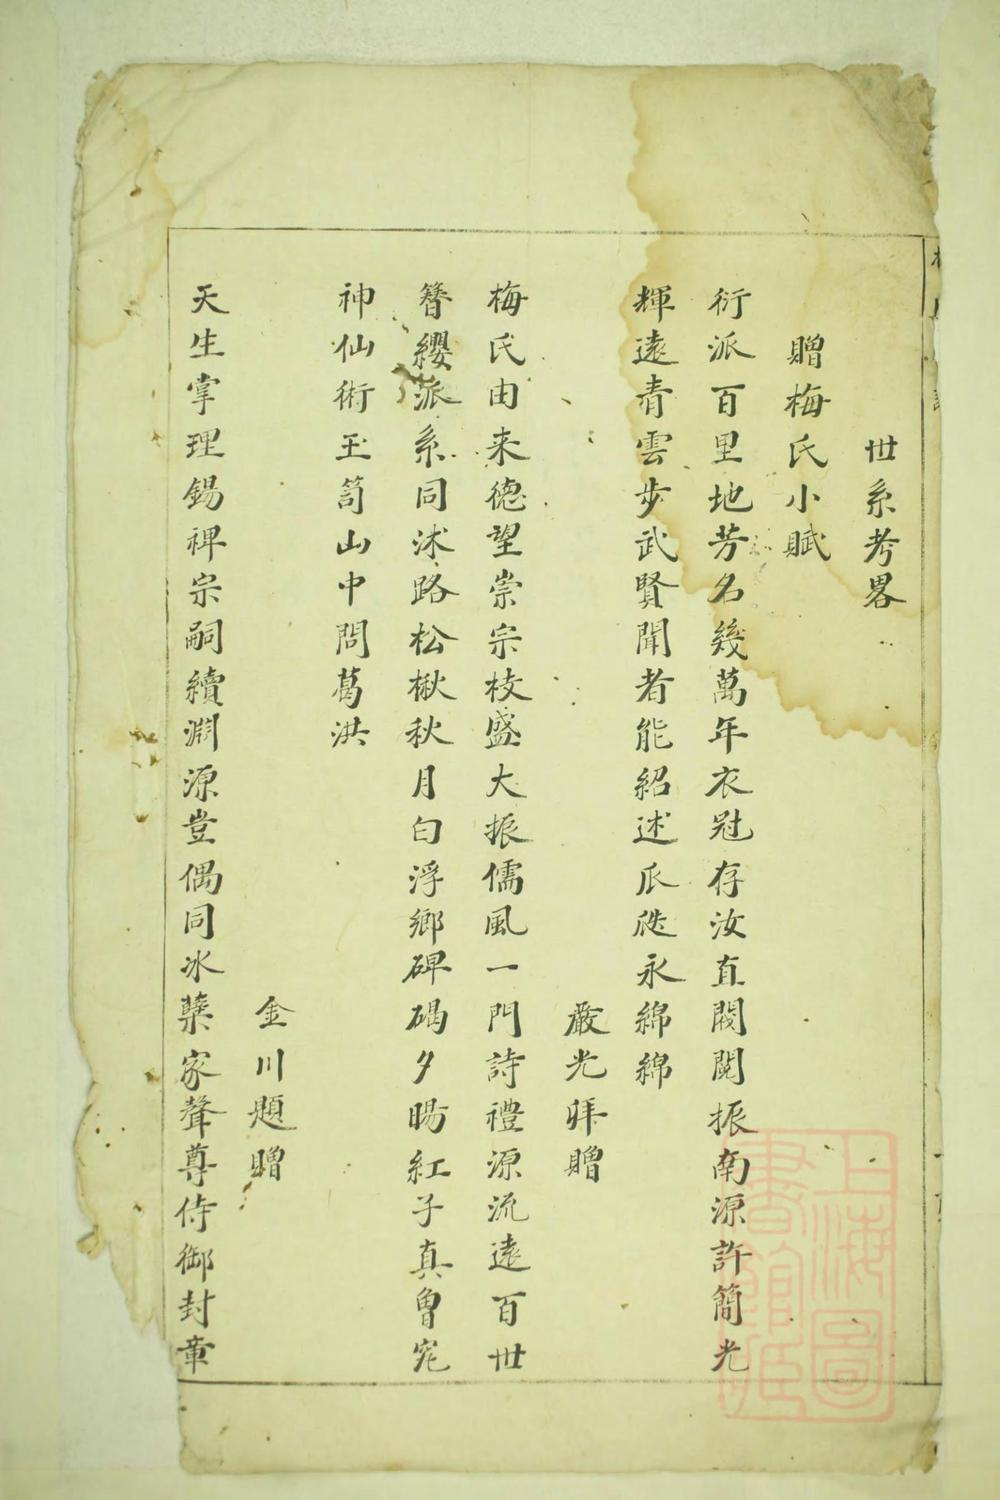 世系考畧
贈梅氏小賦
衍派百里地芳名幾萬年衣冠存汝直閥閱振南源許簡光
輝遠青雲步武賢聞者能紹述瓜瓞永綿綿
嚴光拜贈
梅氏由来德望崇宗枝盛大振儒風一門詩禮源流遠百世
簪纓派系同沭路松楸秋月白浮鄉碑碣夕暘紅子真曾究
神仙術玉笥山中問葛洪
金川題贈
天生掌理錫禆宗嗣續淵源豈偶同冰蘖家聲尊侍御封章
上海圖書館藏